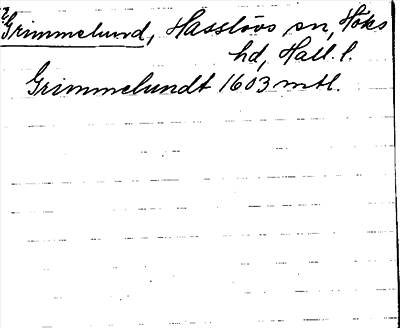 Grimmelund, Hasslövs sn, Höks
hd, Hall. l.
Grimmelundt 1603 mtl.